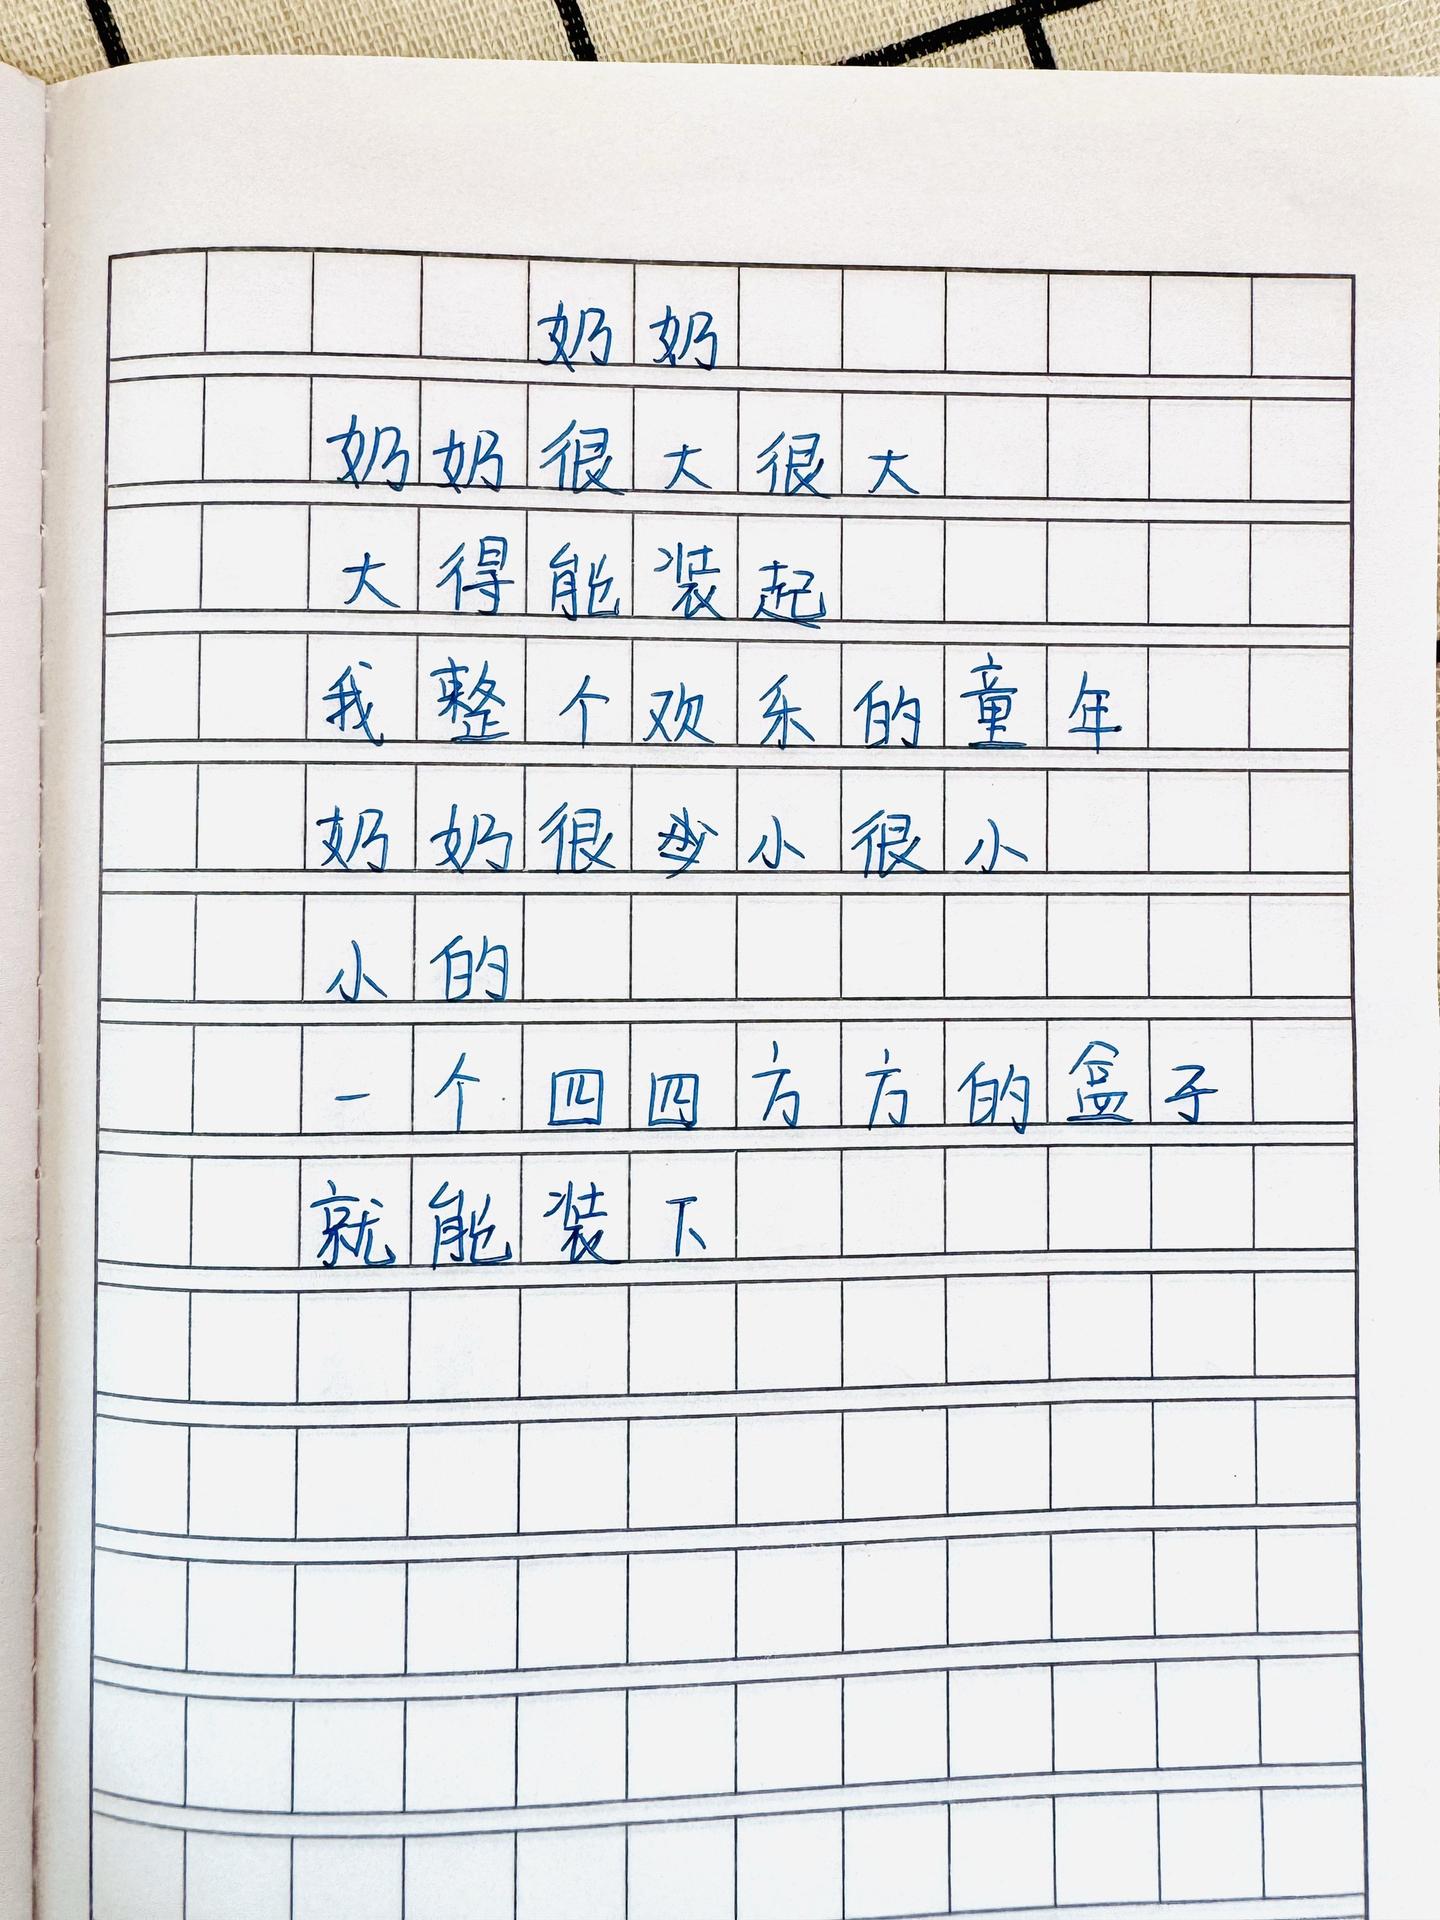 奶奶
奶奶很大很大
大得能装起
我整个欢乐的童年
奶奶很小很小
小的
一个四四方方的盒子
就能装下